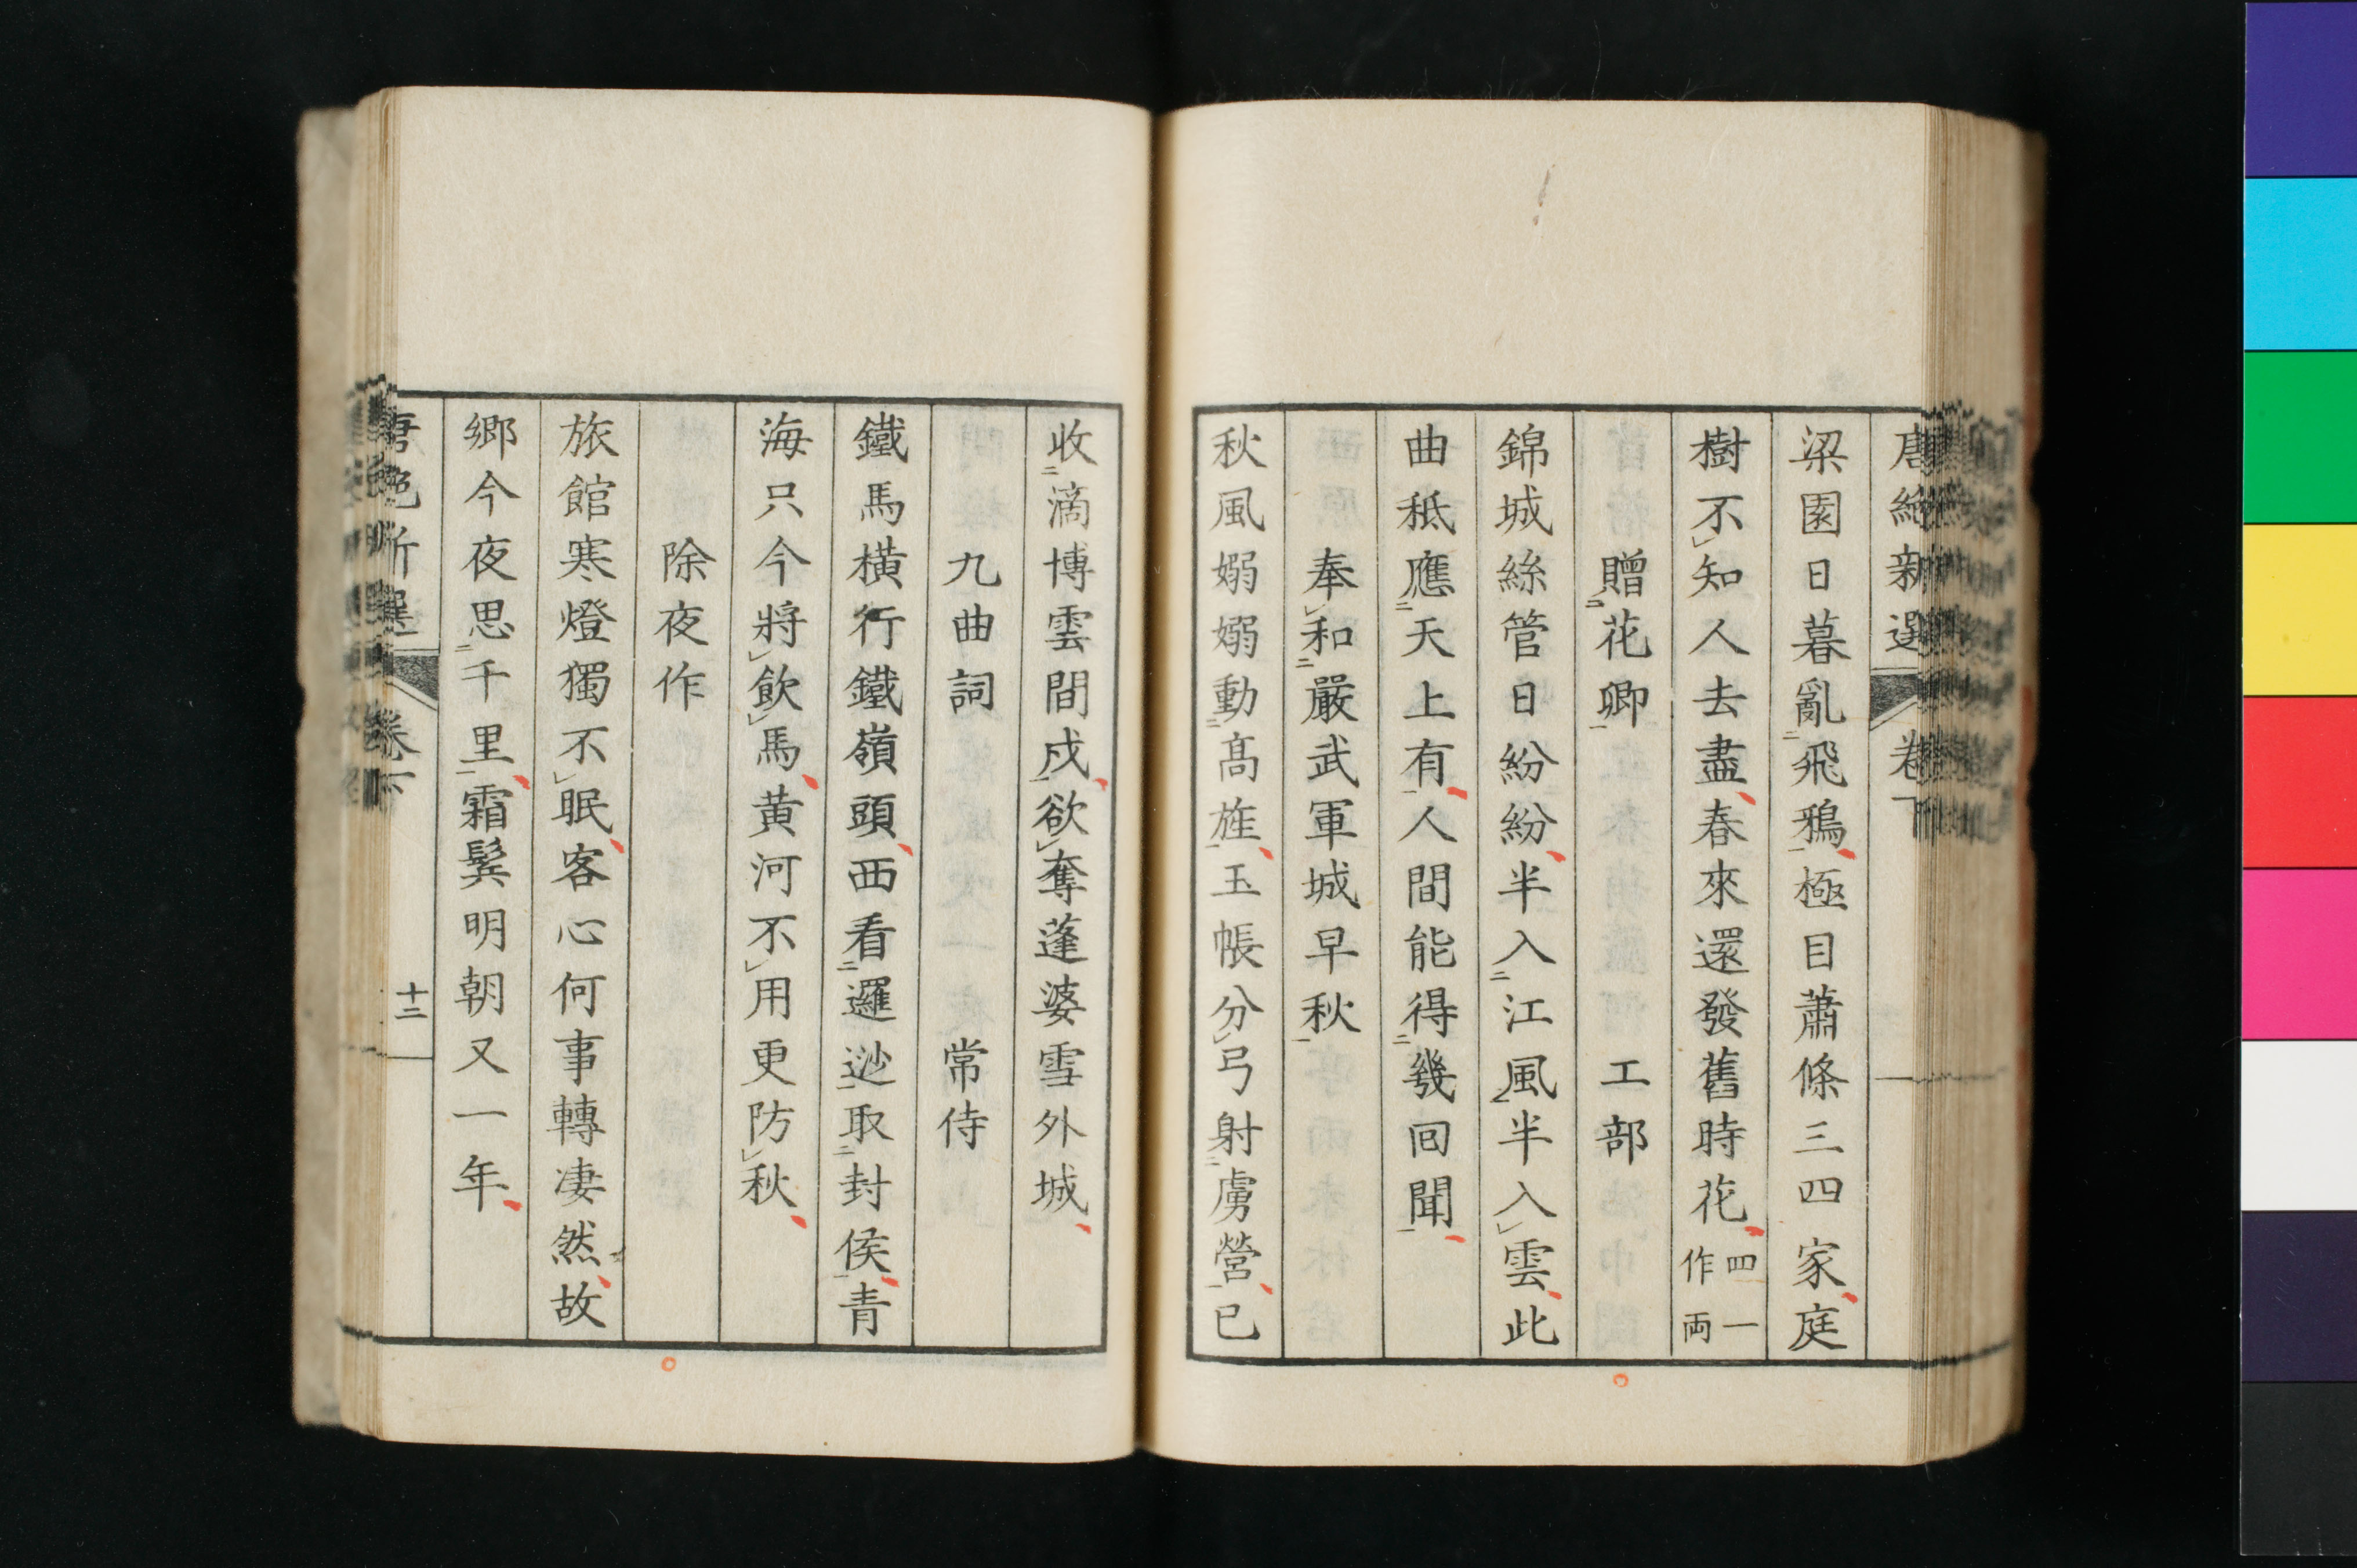 唐絶新選 卷下
梁園日暮亂飛鴉極目蕭條三四家庭
樹不知人去盡春來還發舊時花四一作両
贈花卿 工部
錦城絲管日紛紛半入江風半入雲此
曲秪應天上有人間能得幾回聞
奉和嚴武軍城早秋
秋風嫋嫋動高旌玉帳分弓射虜營已
收滴博雲間戍欲奪蓬婆雪外城
九曲詞 常侍
鐵馬橫行鐵嶺頭西看邏逤取封侯青
海只今將飮馬黄河不用更防秋
除夜作
旅館寒燈獨不眠客心何事轉凄然故
鄉今夜思千里霜鬂明朝又一年
唐絶新選 卷下 十二